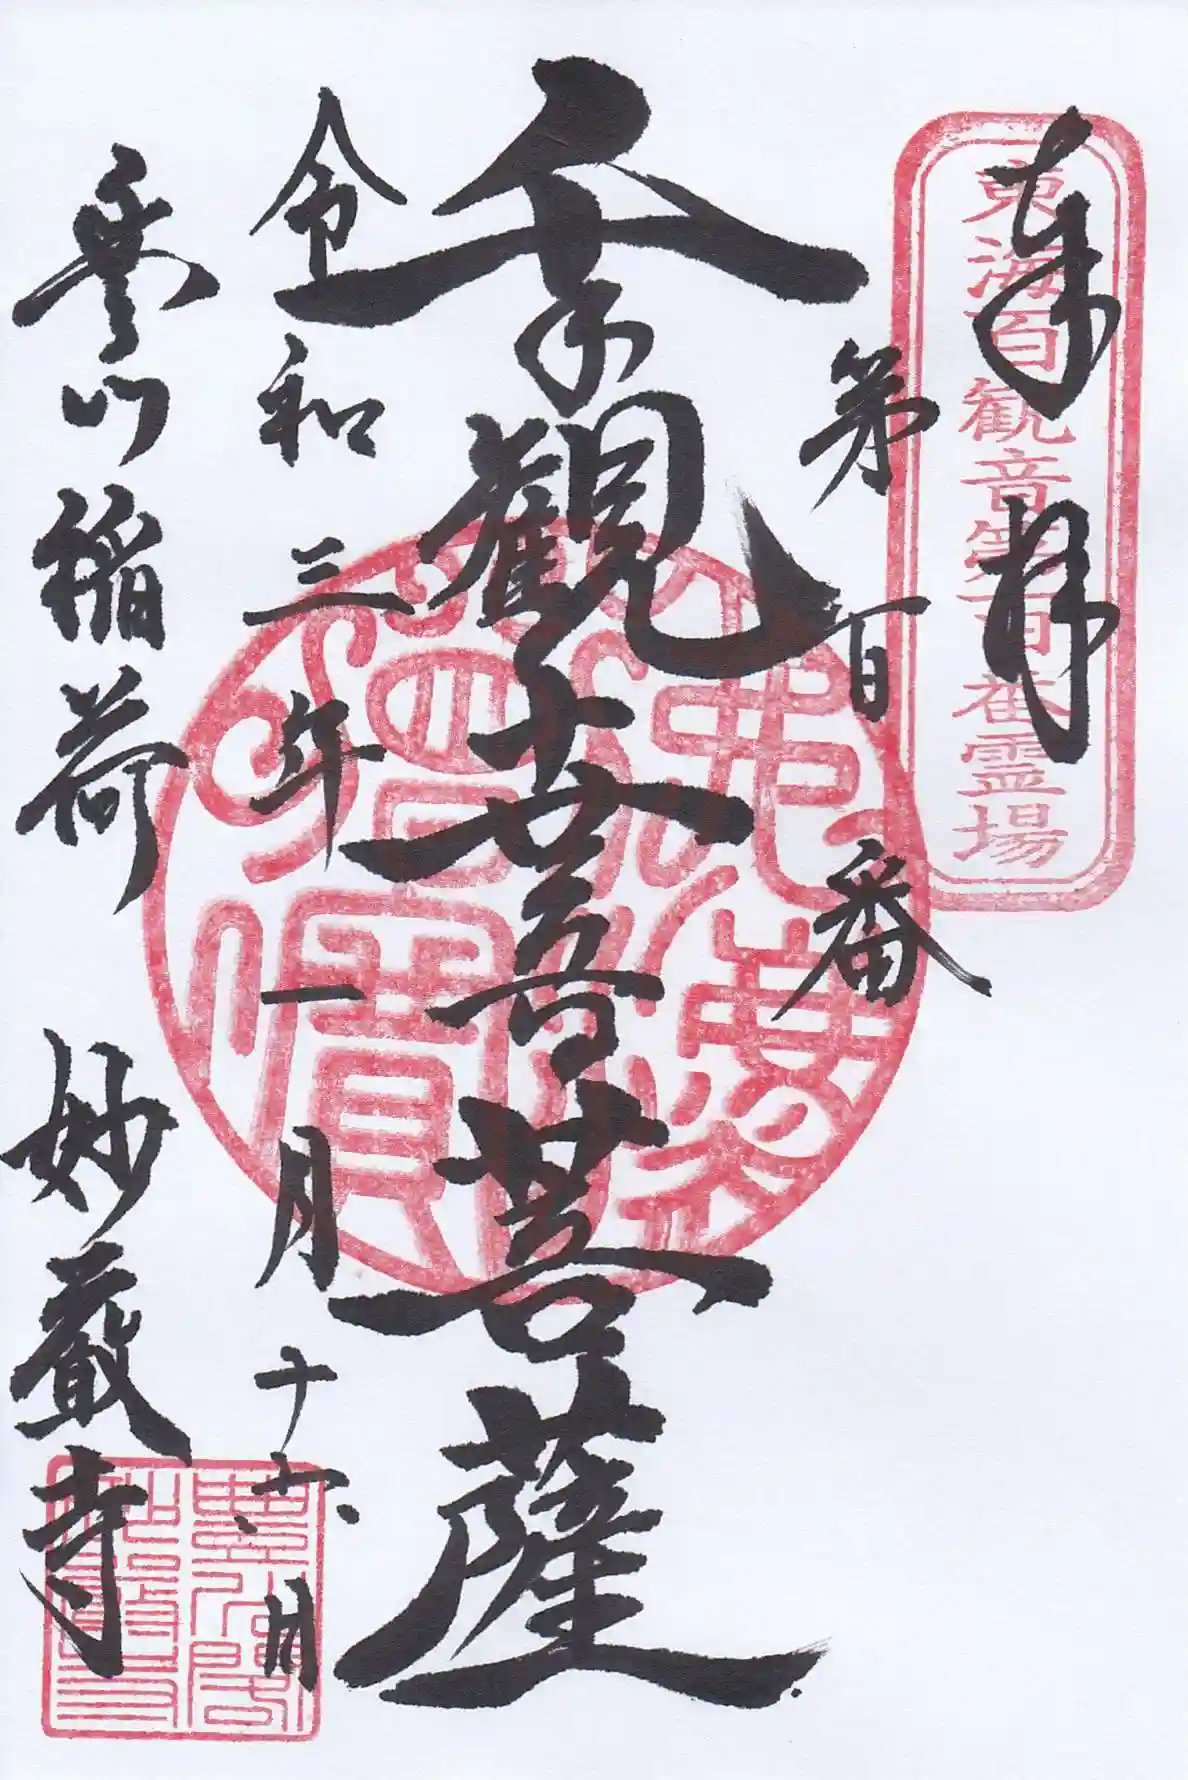 奉拝
東海百観音第百番霊場
第百番
千手觀世音菩薩
令和三年一月十六日
豊川稲荷 妙厳寺
豐川閣
妙嚴寺